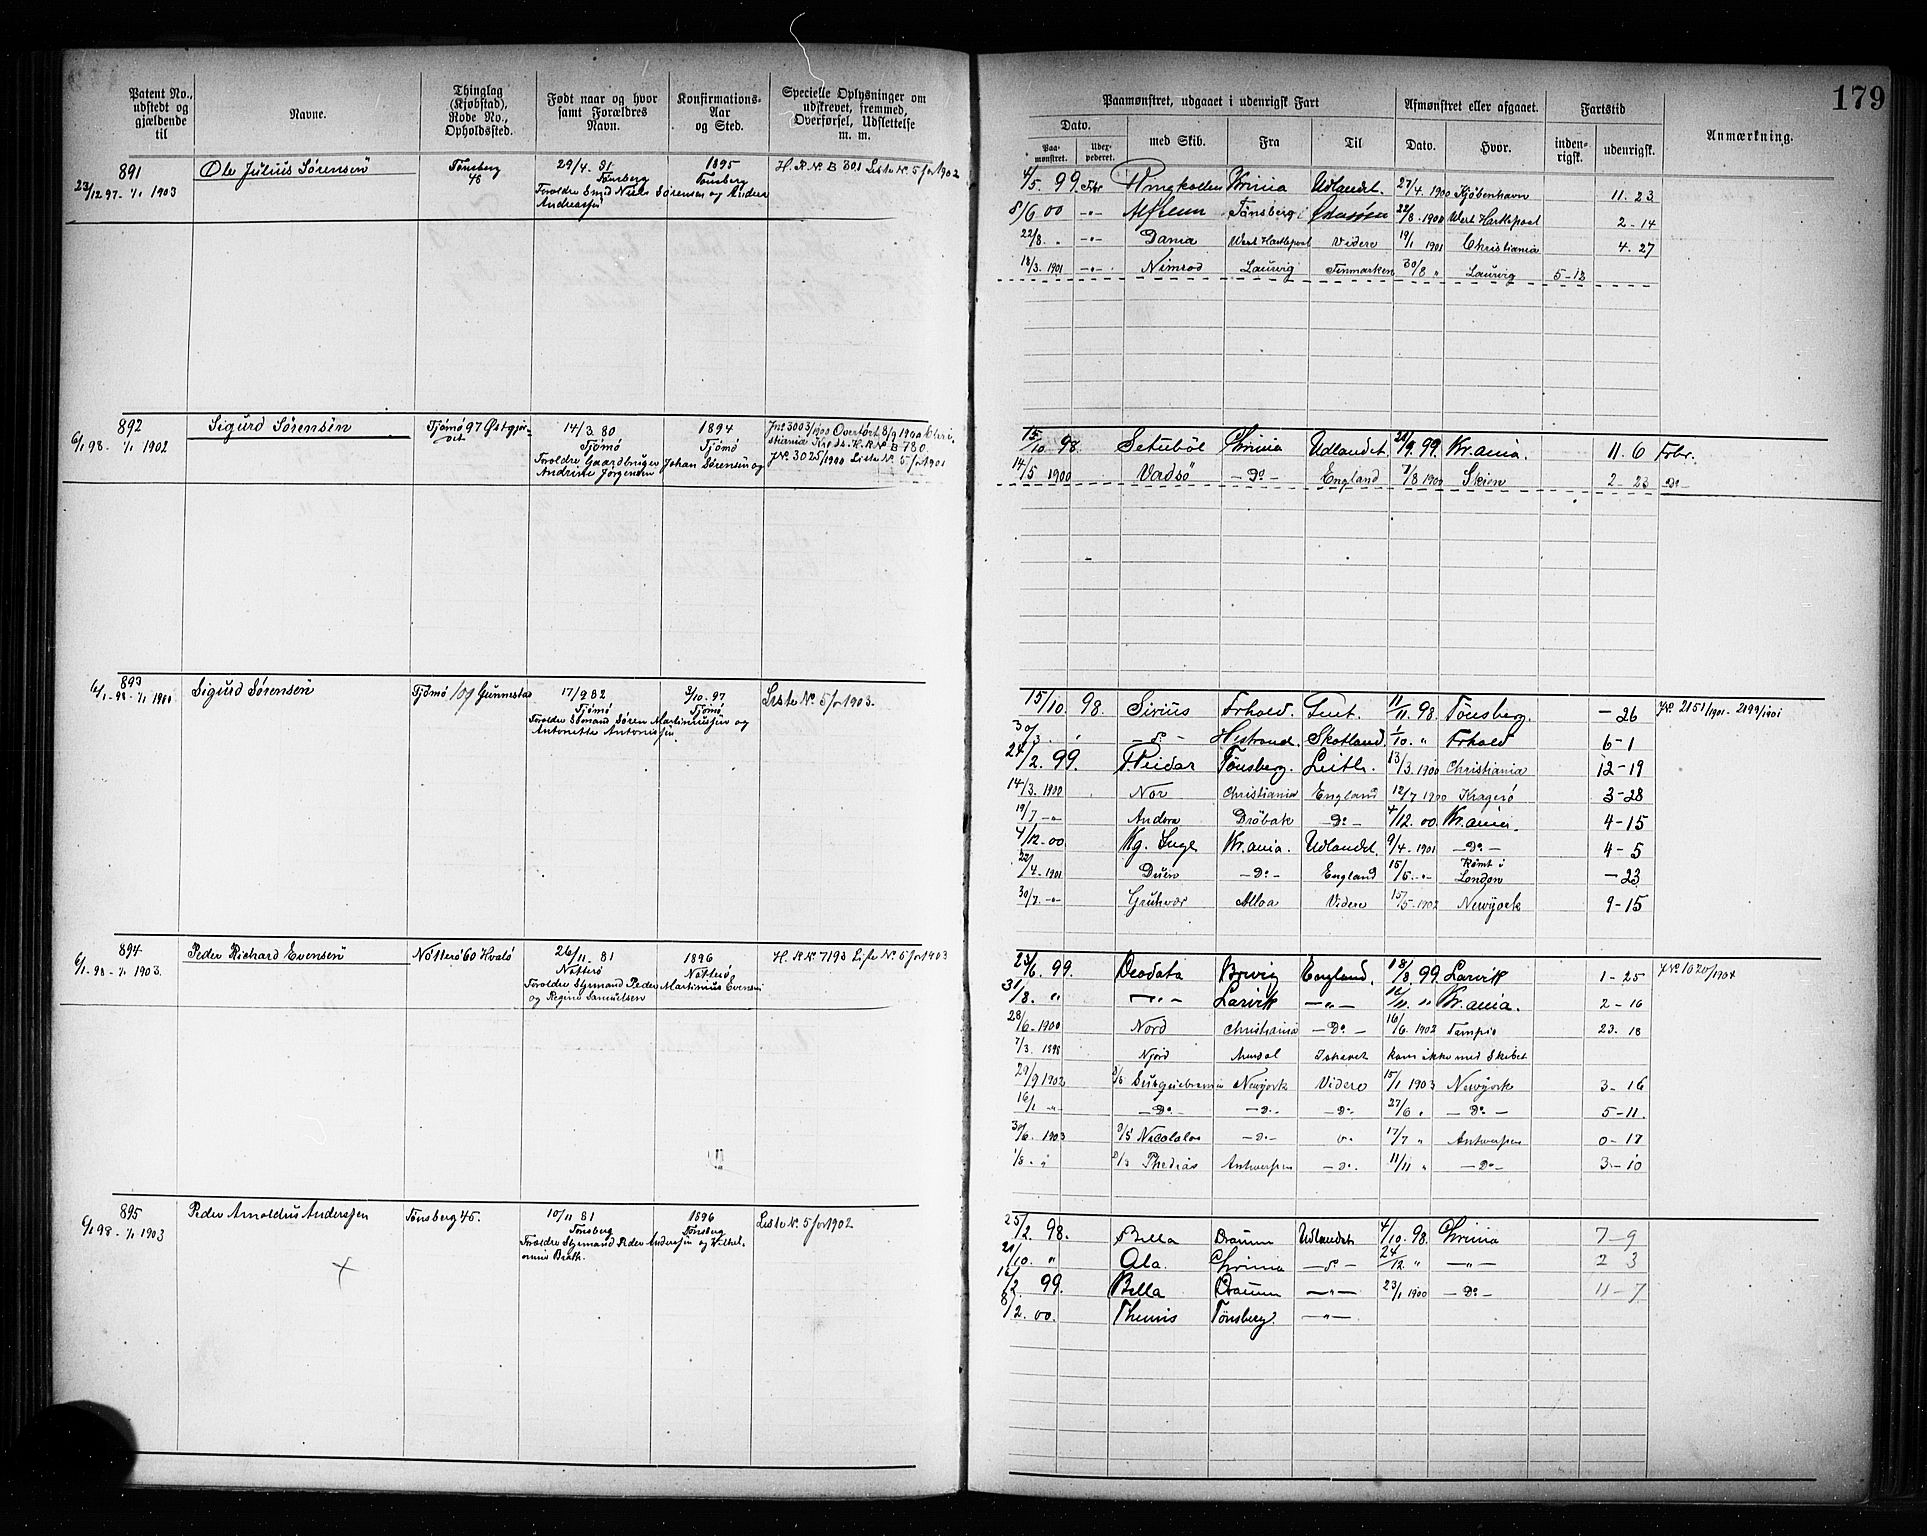 179
Patent No., udstedt og gjældende til
Navne.
Thinglag (Kjøbstad), Rode No., Opholdssted.
Født naar og hvor samt Forældres Navn.
Konfirmations-Aar og Sted.
Specielle Oplysninger om udskrevet, fremmed, Overførsel, Udslettelse m. m.
Paamønstret, udgaaet i udenrigsk Fart
Afmønstret eller afgaaet.
Fartstid
Anmærkning.
Dato.
Paa-mønstret.
Udex-pederet.
med Skib.
Fra
Til
Dato.
Hvor.
inden-rigsk.
udenrigsk.
891
23/12 97 - 1/1 1903
Ole Julius Sørensen
Tønsberg
29/4. 81
Tønsberg
Forældre Smed Niels Sørensen og
Andreassen
1895
Tønsberg
H.R.No. B 801 Liste No. 5 for 1902
4/5. 99 Kr.ania Udlandet. 27/4. 1900 Kjøbenhavn 11. 23
8/6 00 -"- Tønsberg 22/8. 1900 West Hartlepool 2-14
22/8. " -"- Dania West Hartlepool Videre 19/1 1901 Christiania 4. 27
18/3. 1901 -"- Nimrod Laurvig Finmarken 30/8 " Laurvig 5-12
892
6/1 98. 1/1 1902
Sigurd Sørensen
Tjømø 97 Østgjør-
vit
14/3. 80
Tjømø
Forældre Gaardbruger Johan Sørensen og
Andrine Jørgensen
1894
Tjømø
Jnl 3003/1900 Overført 8/9 1900 Chri-
stiania Kreds. H.R.No B 780
J.No. 3025/1900 Liste No. 5 for 1901
15/10. 98. Chrinia Udlandet 21/9. 99. Kr.ania. 11. 6 Frbr.
14/5 1900 Vadsø -Do- England 7/8 1900 Skien 2 - 23 Do-
893
6/1. 98 - 1/1 1900
Sigurd Sørensen
Tjømø 109 Gunnestad
17/2 82
Tjømø
Forældre Sømand Søren Martinnussen og
Antonette Antonissen
3/10. 97
Tjømø
Liste No. 5 for 1903.
15/10. 98. Sirius Frhald. Gent. 11/11. 98. Tønsberg. -26 J.No. 2151/1901 - 2199/1901
30/3. -Do- Skotland 1/10. " Frhald 6-1
24/2. 99. Reidar Tønsberg. Leith. 13/3. 1900 Christiania 12-19
14/3. 1900 Nor Christiania England 12/7 1900 Kragerø 3-28
19/7 -"- Andora Drøbak -Do- 4/12. 00. Kr.ania. 4-15
4/12. 00. Kg. Inge Kr.ania. Udlandet. 9/4. 1901 -Do- 4-5
22/4. 1901 -Do- England 15/5. -"- Rømt i London -23
30/7. -"- Alloa Videre 15/5. 1902 Newyork 9-15
894
6/1. 98 - 1/1 1903.
Peder Richard Evensen
Nøtterø 60 Hvalø
26/11. 81
Nøtterø
Forældre Styrmand Peder Martinius Evensen
og Regine Samuelsen
1896
Nøtterø
H.R.No. 7193 Liste No. 5 for 1903
23/6. 99. Deodata Brevig England. 18/8. 99 Larvik 1-25 J.No. 1020/1904
31/8. " -"- Larvik -"- 16/11. " Kr.ania. 2-16
28/6. 1900 Nord Christiania -Do- 16/6. 1902 23. 18
7/3. 1898 Njord Ishavet kom ikke med Skibet
29/9 1902 Newyork Videre 15/1 1903 Newyork 3-16
16/1 -"- -Do- -Do- -Do- 27/6 " -Do- 5-11.
30/6. 1903 -Do- 17/7 " Antwerpen 0-17
1/8. " Antwerpen -Do- 11/11 " -Do- 3-10
895
6/1 98 - 1/1 1903
Peder Arnoldus Anderssen
Tønsberg 45.
10/11 81
Tønsberg
Forældre Styrmand Peder Anderssen og Vilhel-
mine Bråth.
1896
Tønsberg
Liste No. 5 for 1902.
25/2. 98. Bella Dramn Udlandet 4/10. 98. Chrinia 7-9
21/10. " Ala. Chrinia -Do- 24/12. " -"- 2 3
16/2. 99 Bella Dramn -"- 23/1 1900 -Do- 11-7
8/2. 00. Themis Tønsberg. -"-